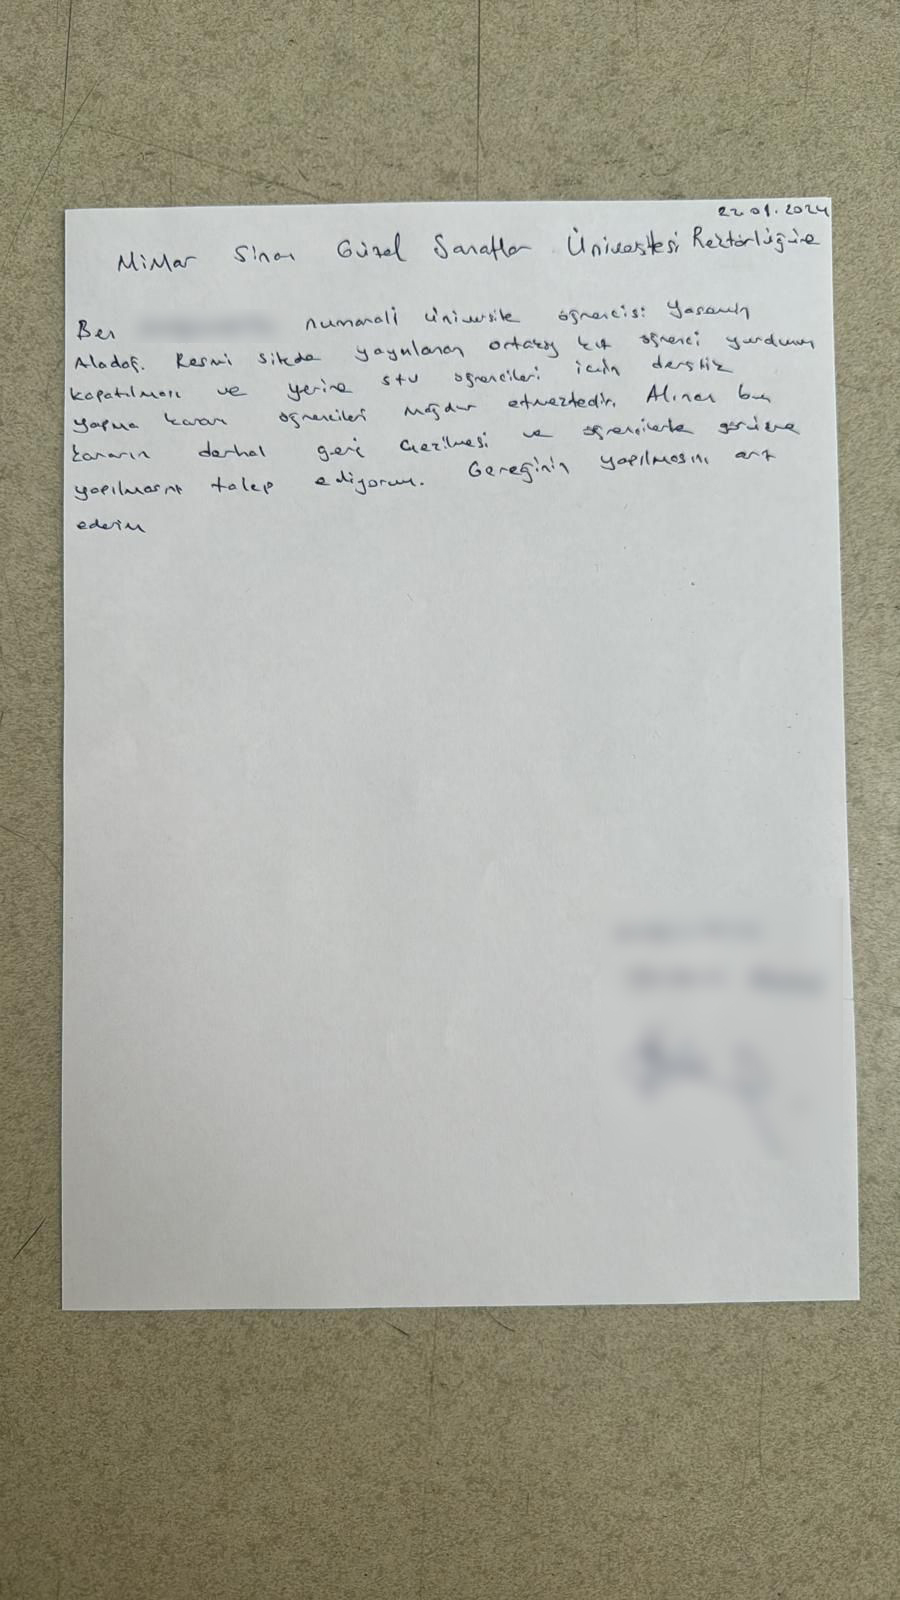 22.01.2024
Mimar Sinan Güzel Sanatlar Üniversitesi Rektörlüğüne
Ben numaralı üniversite öğrencisi Yasemin
Aladağ. Resmi sitede yayınlanan ortaköy kız öğrenci yurdunun
kapatılması ve yerine stv öğrencileri için derslik
yapma kararı öğrencileri mağdur etmektedir. Alınan bu
kararın derhal geri çekilmesi ve öğrencilerle görüşme
yapılmasını talep ediyorum. Gereğinin yapılmasını arz
ederim